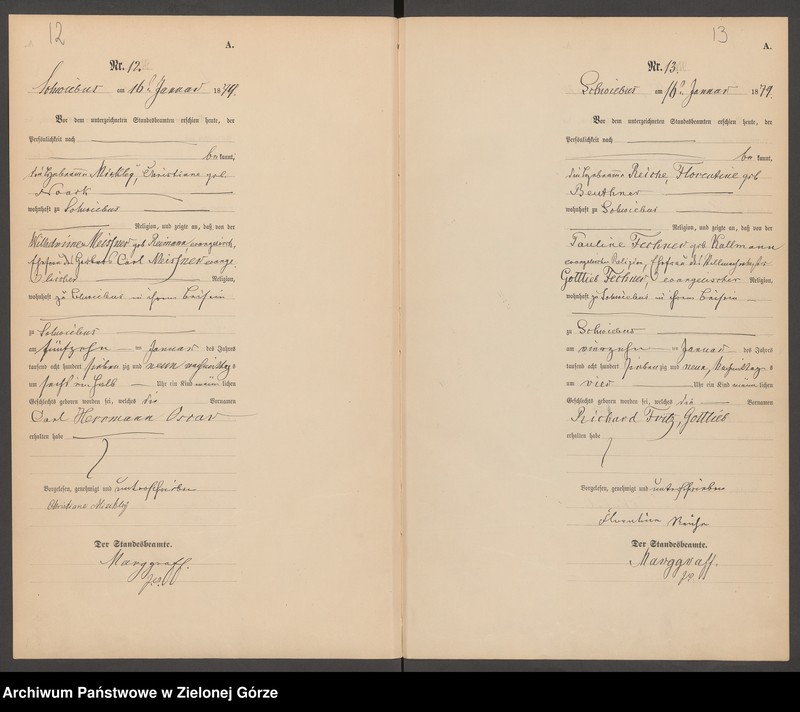 12
A.
Nr. 12.
Schwiebus am 16t Januar 1879.
Vor dem unterzeichneten Standesbeamten erschien heute, der
Persönlichkeit nach
be kannt,
die Hebamme Mischley, Christiane geb
Noack
wohnhaft zu Schwiebus
Religion, und zeigte an, daß von der
Wilhelmine Meissner geb Riemann evangelisch,
Ehefrau des Carl Meissner evange
lischer Religion,
wohnhaft zu Schwiebus in ihrem Beisein
zu Schwiebus
am fünfzehn ten Januar des Jahres
tausend acht hundert sieben zig und neun nachmittag s
um sechs ein halb Uhr ein Kind männ lichen
Geschlechts geboren worden sei, welches die Vornamen
Carl Herrmann Oscar
erhalten habe
Vorgelesen, genehmigt und unterschrieben
Christiane Mischley
Der Standesbeamte.
Marggraff.
13
A.
Nr. 13.
Schwiebus am 16t Januar 1879.
Vor dem unterzeichneten Standesbeamten erschien heute, der
Persönlichkeit nach
be kannt,
die Hebamme Reiche, Florentine geb
Beuthner
wohnhaft zu Schwiebus
Religion, und zeigte an, daß von der
Pauline Fechner geb Kallmann
evangelischer Religion, Ehefrau des
Gottlieb Fechner, evangelischer Religion,
wohnhaft zu Schwiebus in ihrem Beisein
zu Schwiebus
am vierzehn ten Januar des Jahres
tausend acht hundert sieben zig und neun, Nachmittag s
um vier Uhr ein Kind männ lichen
Geschlechts geboren worden sei, welches die Vornamen
Richard Fritz, Gottlieb
erhalten habe
Vorgelesen, genehmigt und unterschrieben
Florentine Reiche
Der Standesbeamte.
Marggraff.
Archiwum Państwowe w Zielonej Górze